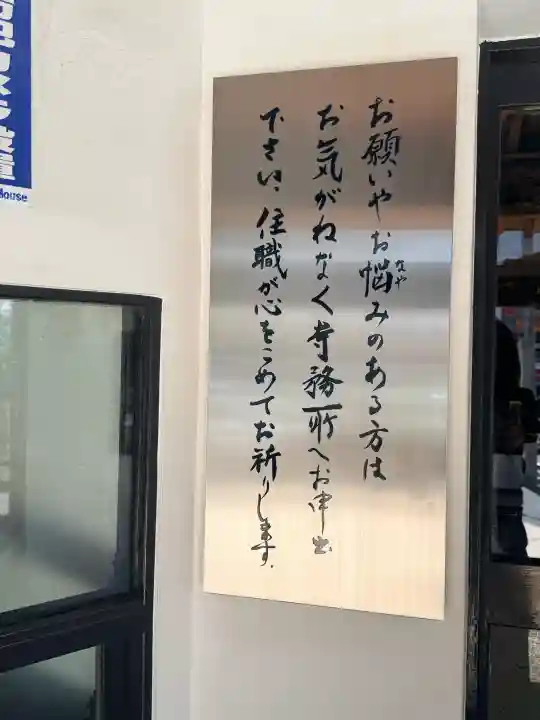 お願いやお悩みのある方は
なや
お気がねなく寺務所へお申出
下さい、住職が心をこめてお祈りします。
カメラ設置
House